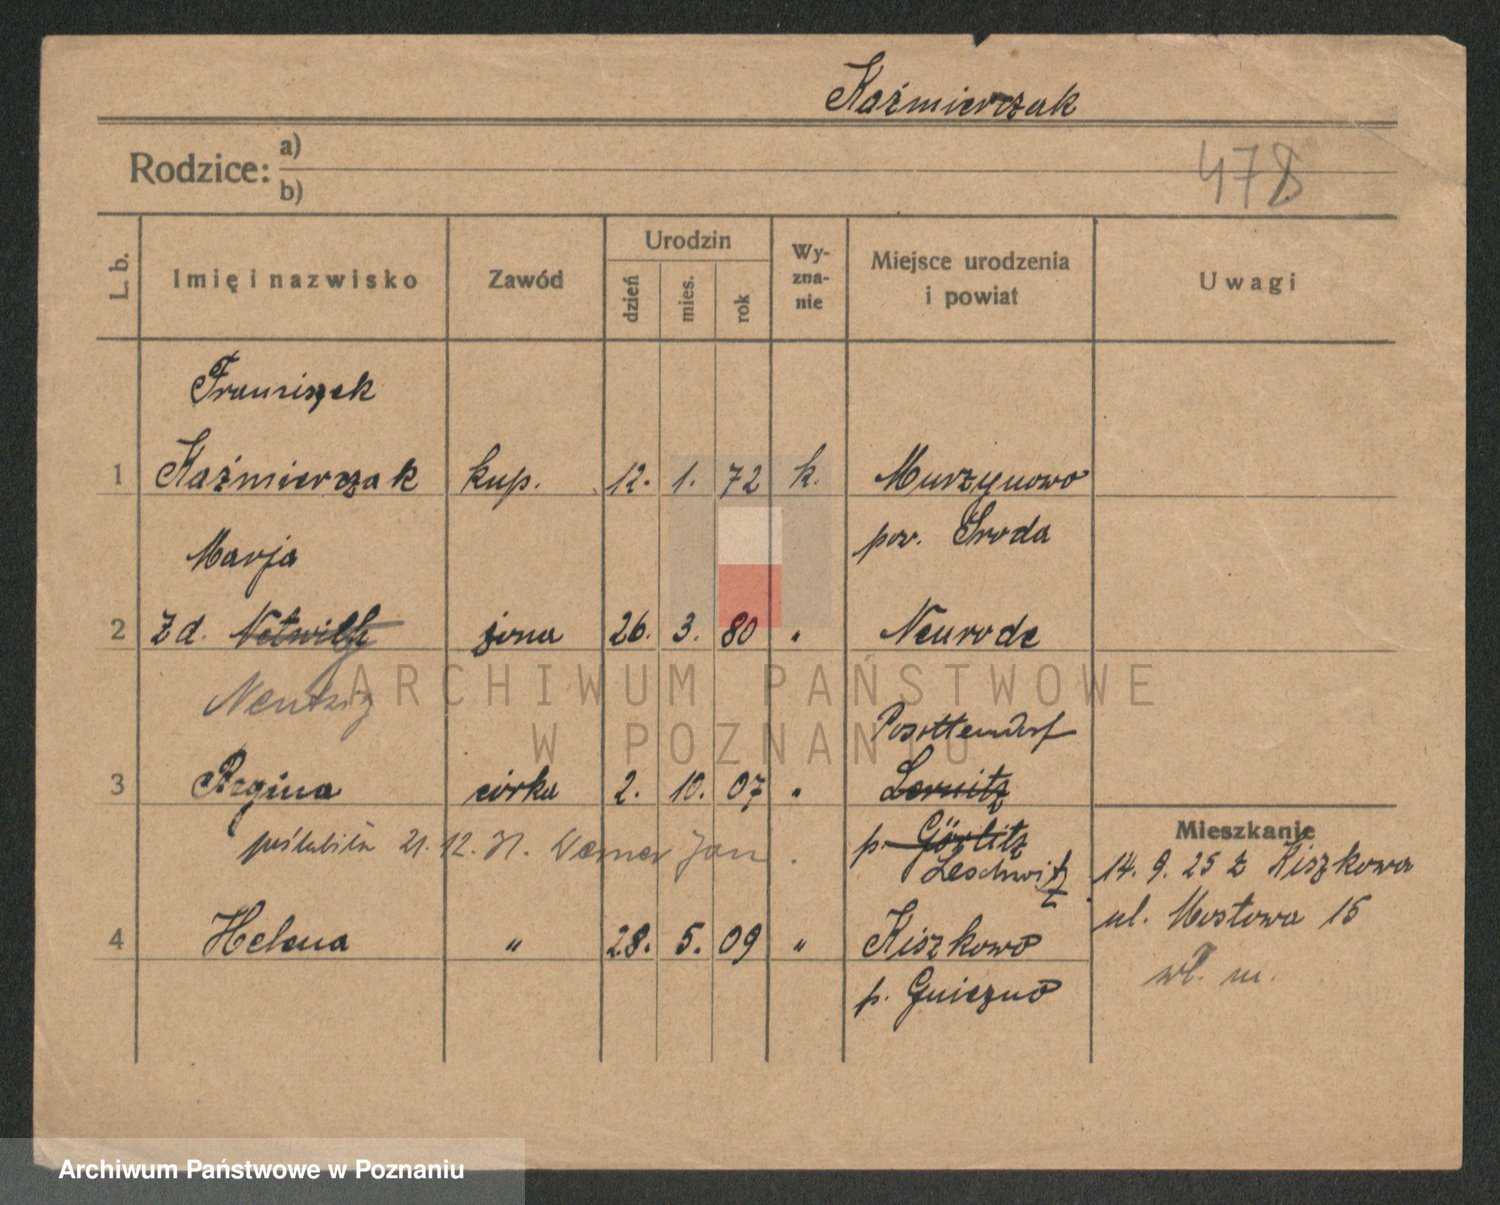 Kaźmierczak
Rodzice: a)
b)
478
L. b.
Imię i nazwisko
Zawód
Urodzin
dzień
mies.
rok
Wy-
zna-
nie
Miejsce urodzenia
i powiat
Uwagi
Franciszek
1 Kaźmierczak kup. 12. 1. 72 k. Murzynowo
pow. Środa
Marja
2 z d. żona 26. 3. 80 " Neurode
Neutzig
Posottendorf
3 Regina córka 2. 10. 07 "
poślubiła 21. 12. 31. Werner Jan.
p. Görlitz
Leschwitz
4 Helena " 28. 5. 09 " Kiszkowo
p. Gniezno
Mieszkanie
14. 9. 25 z Kiszkowa
ul. Mostowa 15
wł. m.
ARCHIWUM PAŃSTWOWE
W POZNANIU
Archiwum Państwowe w Poznaniu